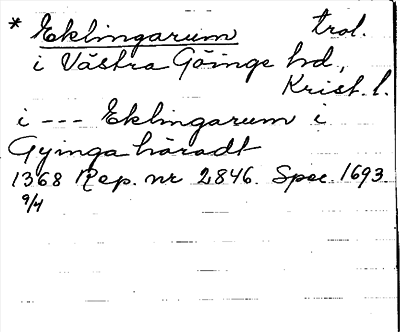 * Eklingarum trol.
i Västra Göinge hd,
Krist. l.
i --- Eklingarum i
Gyinga häradt
1368 Rep. nr 2846. Spec. 1693.
9/4